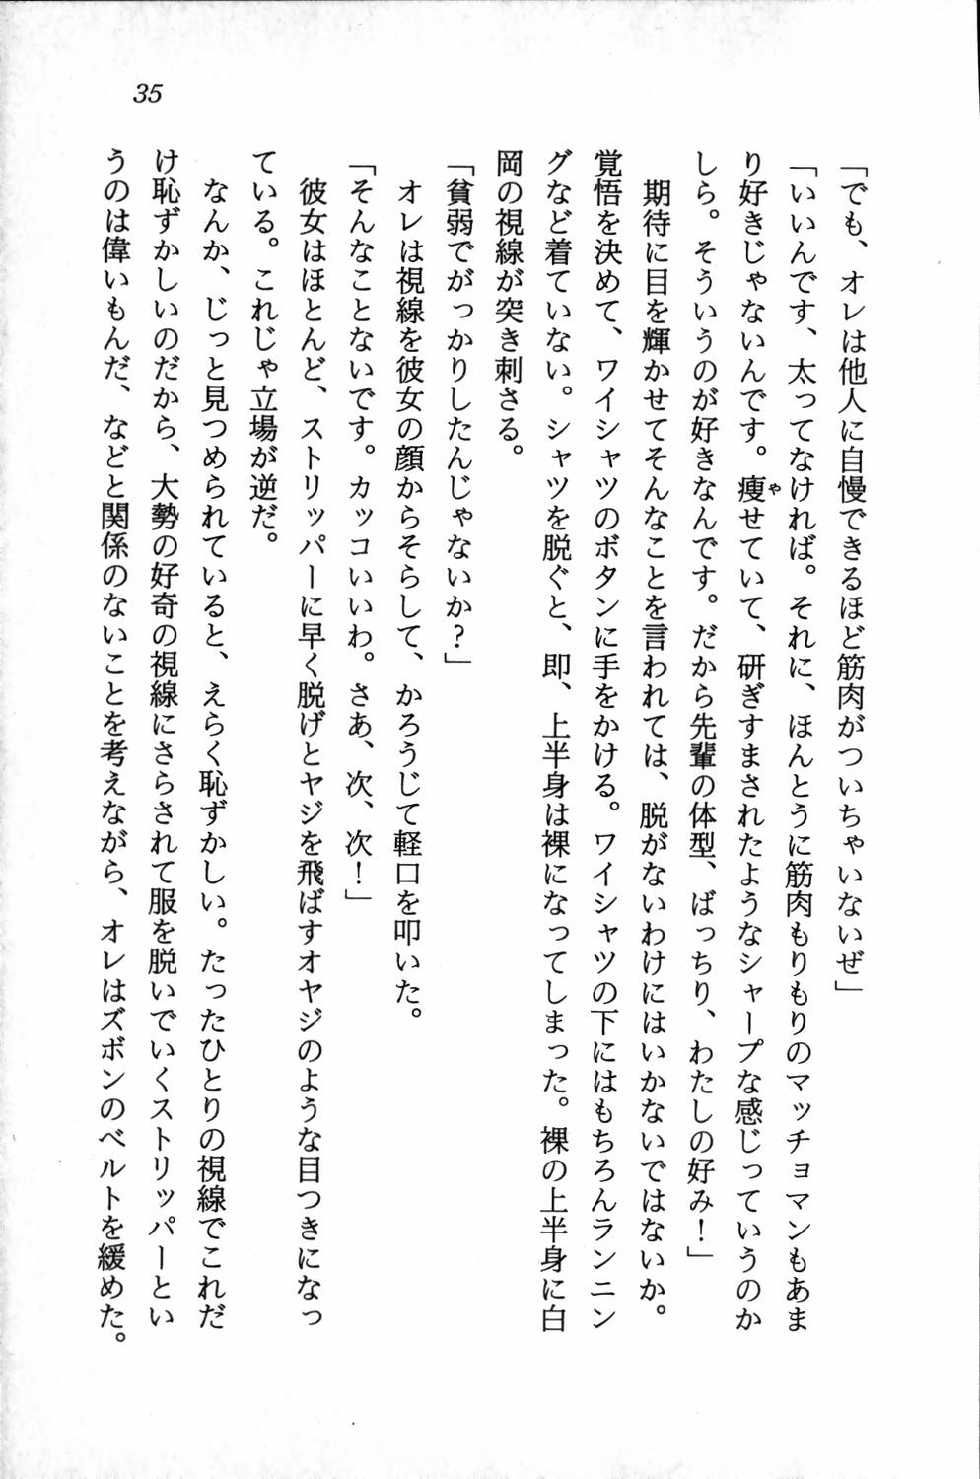 35
「でも、オレは他人に自慢できるほど筋肉がついちゃいないぜ」
「いいんです、太ってなければ。それに、ほんとうに筋肉もりもりのマッチョマンもあま
り好きじゃないんです。痩せていて、研ぎすまされたようなシャープな感じっていうのか
しら。そういうのが好きなんです。だから先輩の体型、ばっちり、わたしの好み！」
期待に目を輝かせてそんなことを言われては、脱がないわけにはいかないではないか。
覚悟を決めて、ワイシャツのボタンに手をかける。ワイシャツの下にはもちろんランニン
グなど着ていない。シャツを脱ぐと、即、上半身は裸になってしまった。裸の上半身に白
岡の視線が突き刺さる。
「貧弱でがっかりしたんじゃないか？」
オレは視線を彼女の顔からそらして、かろうじて軽口を叩いた。
「そんなことないです。カッコいいわ。さあ、次、次！」
彼女はほとんど、ストリッパーに早く脱げとヤジを飛ばすオヤジのような目つきになっ
ている。これじゃ立場が逆だ。
なんか、じっと見つめられていると、えらく恥ずかしい。たったひとりの視線でこれだ
け恥ずかしいのだから、大勢の好奇の視線にさらされて服を脱いでいくストリッパーとい
うのは偉いもんだ、などと関係のないことを考えながら、オレはズボンのベルトを緩めた。